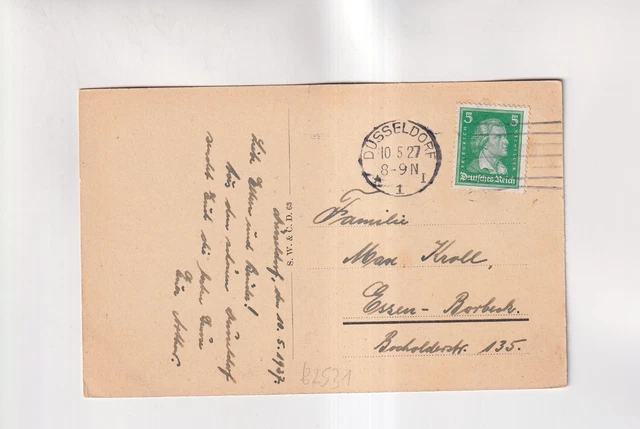 Düsseldorf, den 10.5.1927.
Liebe Eltern und Brüder!
Aus dem schönen Düsseldorf
sendet Euch die besten Grüsse
Euer Arthur.
S. W. & C. D. 63
DÜSSELDORF
10 5 27
8-9N
1
I
5 5
FRIEDRICH SCHILLER
Deutsches Reich
Familie
Max Kroll,
Essen-Borbeck.
Bocholderstr. 135.
62531